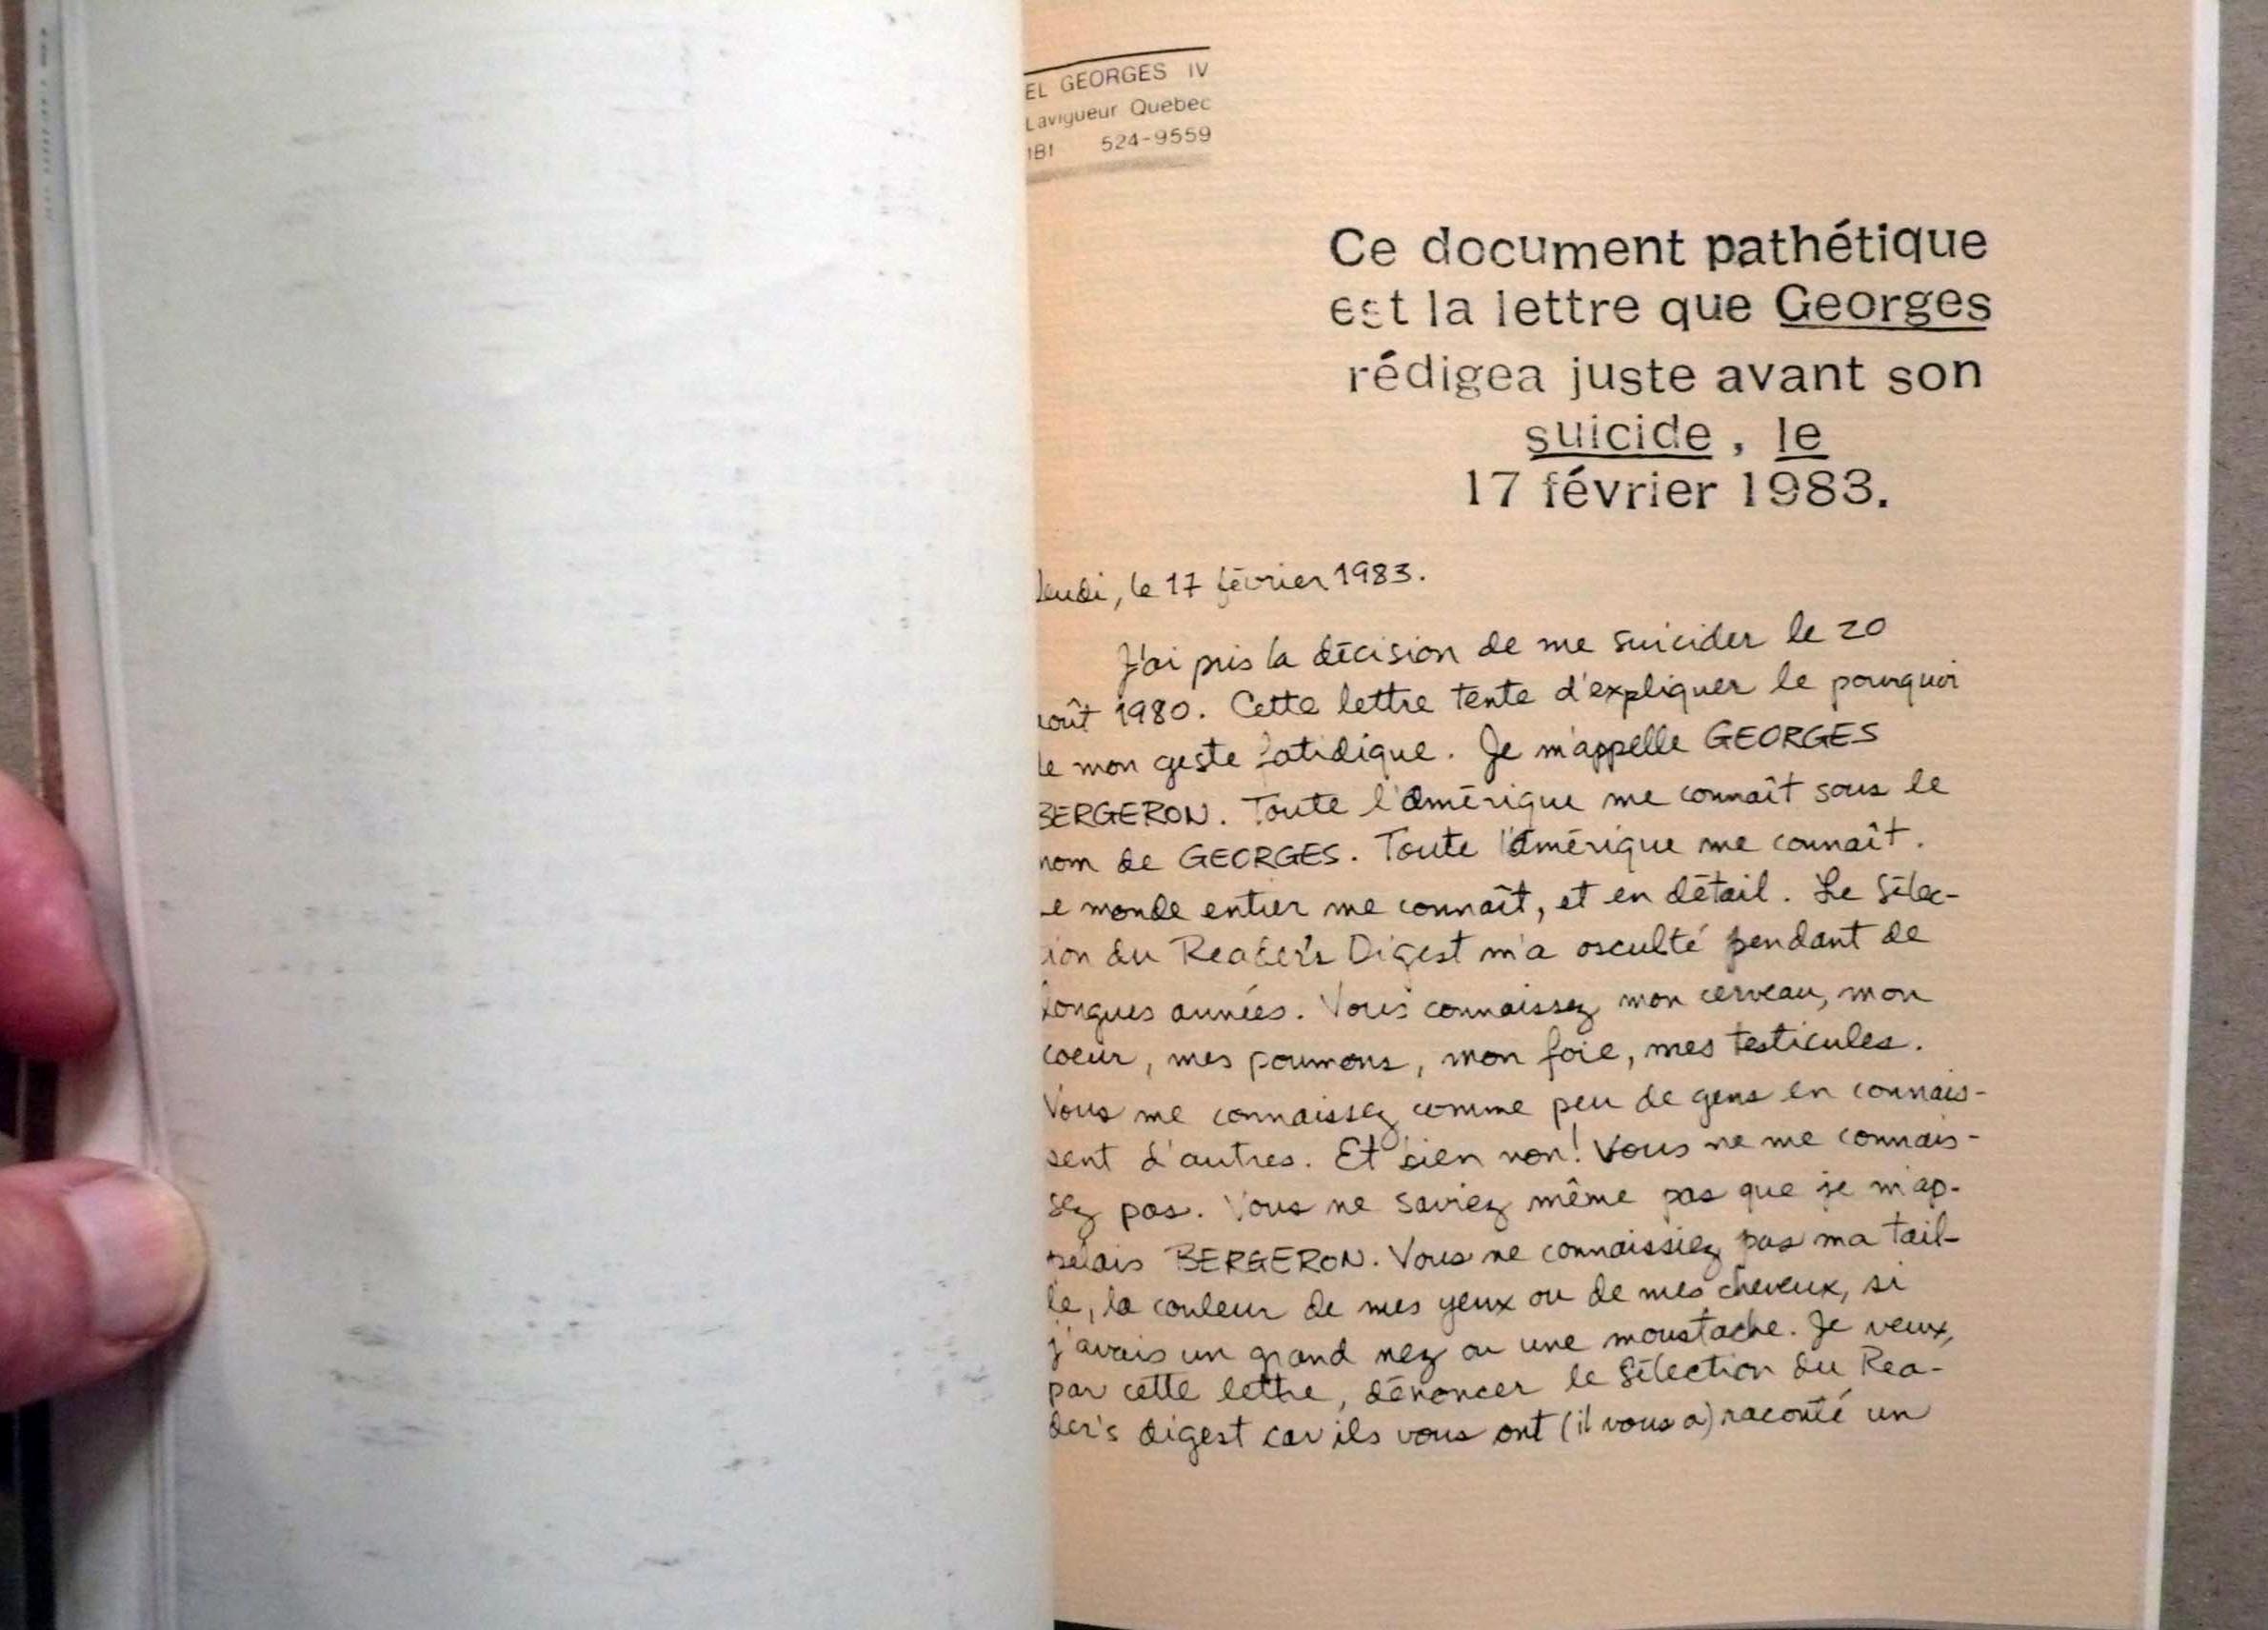 EL GEORGES IV
Lavigueur Quebec
1B1 524-9559
Ce document pathétique
est la lettre que Georges
rédigea juste avant son
suicide, le
17 février 1983.
Jeudi, le 17 février 1983.
J'ai pris la décision de me suicider le 20
août 1980. Cette lettre tente d'expliquer le pourquoi
de mon geste fatidique. Je m'appelle GEORGES
BERGERON. Toute l'amérique me connaît sous le
nom de GEORGES. Toute l'amérique me connaît.
Le monde entier me connaît, et en détail. Le Sélec-
tion du Reader's Digest m'a osculté pendant de
longues années. Vous connaissez mon cerveau, mon
coeur, mes poumons, mon foie, mes testicules.
Vous me connaissez comme peu de gens en connais-
sent d'autres. Et bien non! Vous ne me connais-
sez pas. Vous ne saviez même pas que je m'ap-
pelais BERGERON. Vous ne connaissiez pas ma tail-
le, la couleur de mes yeux ou de mes cheveux, si
j'avais un grand nez ou une moustache. Je veux,
par cette lettre, dénoncer le Sélection du Rea-
der's digest car ils vous ont (il vous a) raconté un